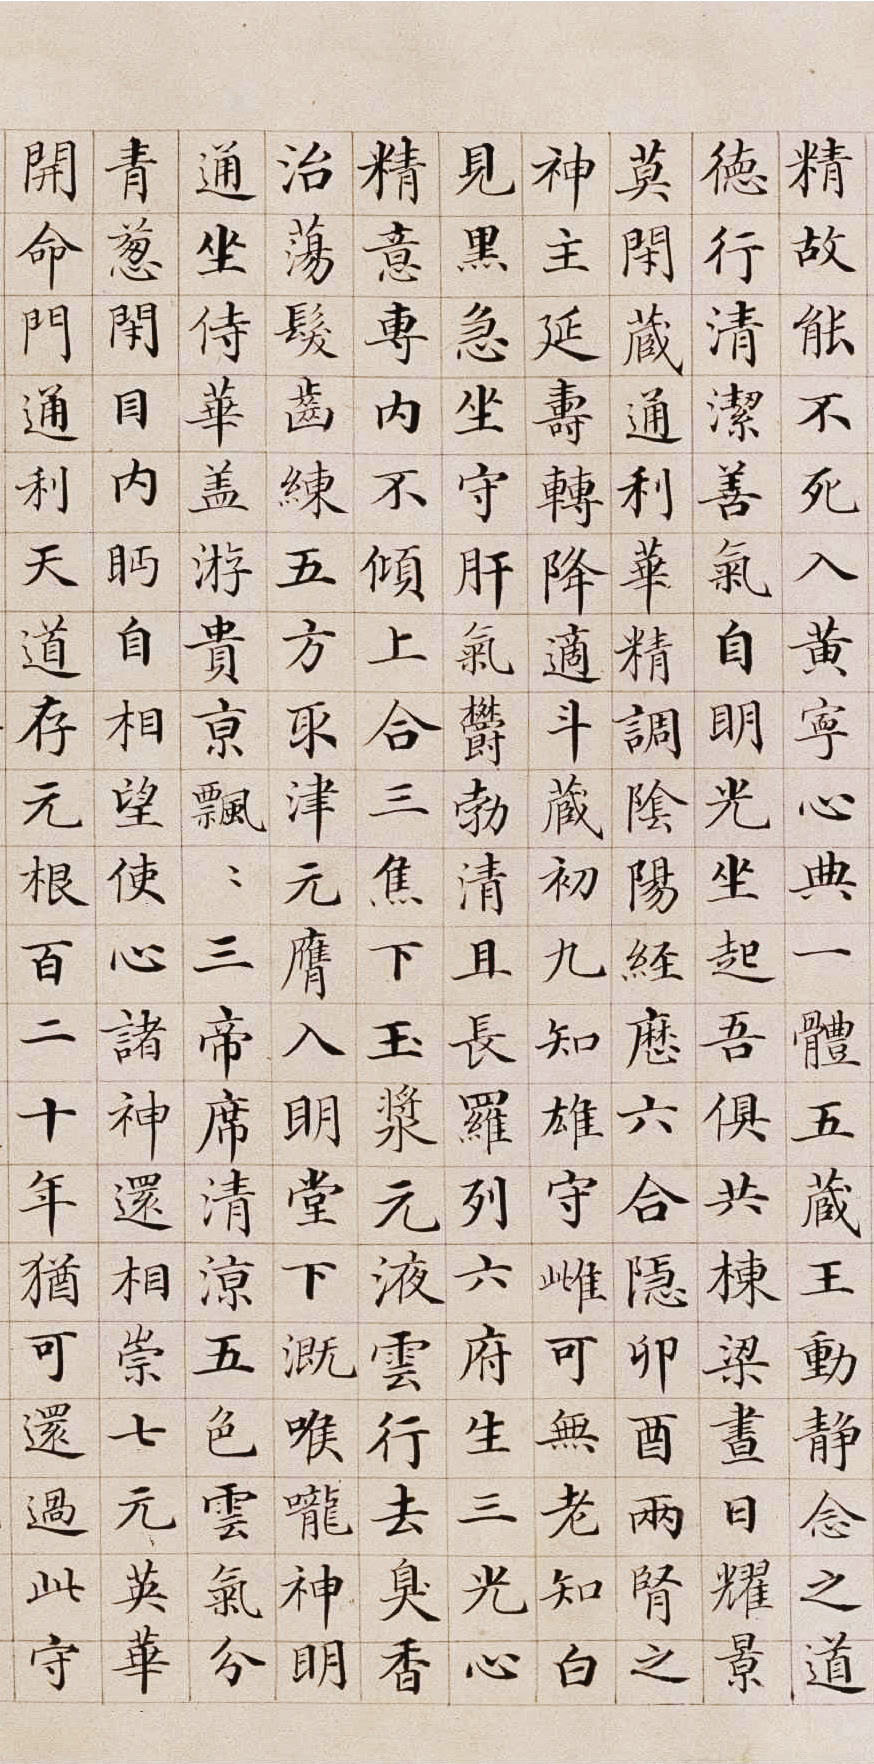 精故能不死入黄寧心典一體五蔵王動静念之道
徳行清潔善氣自明光坐起吾俱共棟梁晝日耀景
莫閇蔵通利華精調陰陽経歴六合隱卯酉兩腎之
神主延壽轉降適斗蔵初九知雄守雌可無老知白
見黒急坐守肝氣欝勃清且長羅列六府生三光心
精意專内不傾上合三焦下玉漿元液雲行去臭香
治蕩髮齒練五方取津元膺入明堂下溉喉嚨神明
通坐侍華盖游貴京飄〻三帝席清涼五色雲氣分
青葱閇目内眄自相望使心諸神還相崇七元英華
開命門通利天道存元根百二十年猶可還過此守